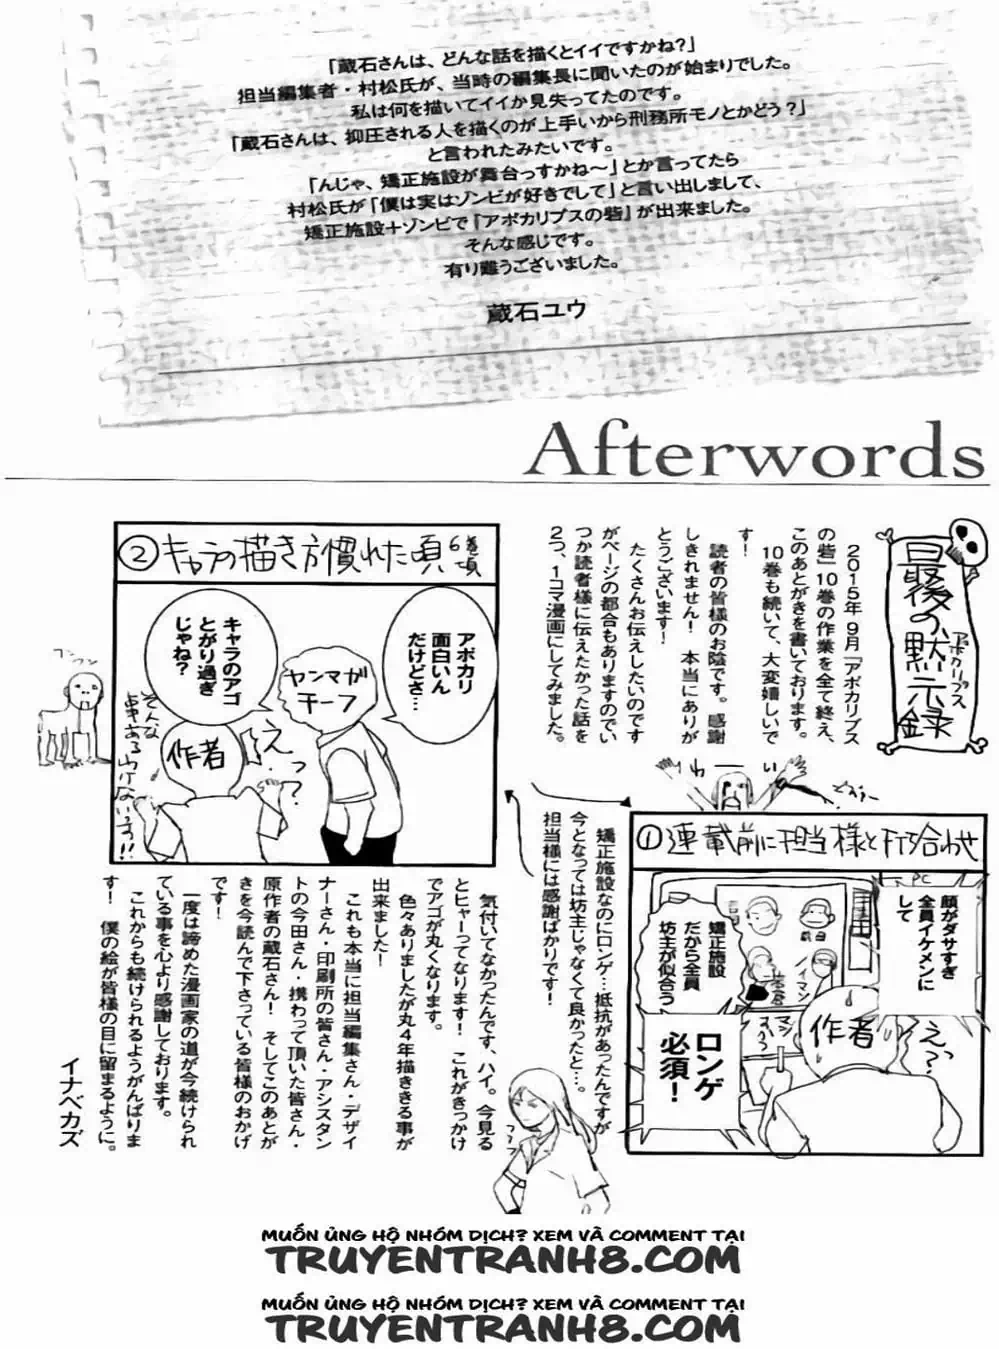 「蔵石さんは、どんな話を描くとイイですかね?」
担当編集者・村松氏が、当時の編集長に聞いたのが始まりでした。
私は何を描いてイイか見失ってたのです。
「蔵石さんは、抑圧される人を描くのが上手いから刑務所モノとかどう?」
と言われたみたいです。
「んじゃ、矯正施設が舞台っすかね〜」とか言ってたら
村松氏が「僕は実はゾンビが好きでして」と言い出しまして、
矯正施設+ゾンビで『アポカリプスの砦』が出来ました。
そんな感じです。
有り難うございました。
蔵石ユウ
Afterwords
最後の黙示録
アポカリプス
2015年9月「アポカリプス
の砦」10巻の作業を全て終え、
このあとがきを書いております。
10巻も続いて、大変嬉しいで
す!
読者の皆様のお陰です。感謝
しきれません! 本当にありが
とうございます!
たくさんお伝えしたいのです
がページの都合もありますのでい
つか読者様に伝えたかった話を
2つ、1コマ漫画にしてみました。
わーい
①連載前に担当様と打ち合わせ
PC
顔がダサすぎ
全員イケメンに
して
矯正施設
だから全員
坊主が似合う
前田
ノイマン
吉岡
ロンゲ
必須!
作者
えっ
矯正施設なのにロンゲ…抵抗があったんですが
今となっては坊主じゃなくて良かったと…。
担当様には感謝ばかりです!
②キャラの描き方慣れた頃
6巻頃
アポカリ
面白いん
だけどさ…
ヤンマガ
チーフ
キャラのアゴ
とがり過ぎ
じゃね?
作者
え
っ?
そんな
事あるわけないっす!!
フンフン
気付いてなかったんです、ハイ。今見る
とヒャーってなります! これがきっかけ
でアゴが丸くなります。
色々ありましたが丸4年描ききる事が
出来ました!
これも本当に担当編集さん・デザイ
ナーさん・印刷所の皆さん・アシスタン
トの今田さん・携わって頂いた皆さん・
原作者の蔵石さん! そしてこのあとが
きを今読んで下さっている皆様のおかげ
です!
一度は諦めた漫画家の道が今続けられ
ている事を心より感謝しております。
これからも続けられるようがんばりま
す! 僕の絵が皆様の目に留まるように。
イナベカズ
MUỐN ỦNG HỘ NHÓM DỊCH? XEM VÀ COMMENT TẠI
TRUYENTRANH8.COM
MUỐN ỦNG HỘ NHÓM DỊCH? XEM VÀ COMMENT TẠI
TRUYENTRANH8.COM